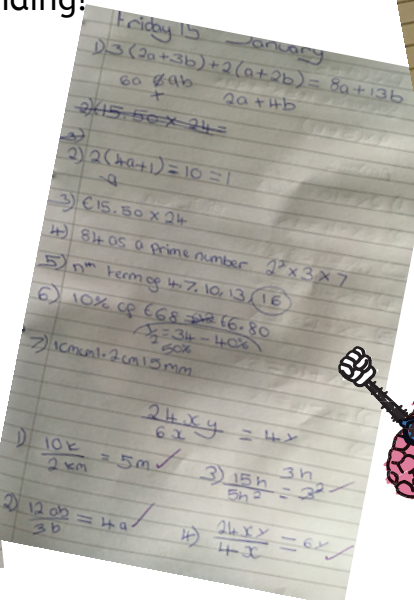 nding!
Friday 15 January
1) 3(2a+3b)+2(a+2b) = 8a+13b
6a 9ab 2a+4b
+
2) (15.50 × 24 =
2)
2) 2(4a+1) = 10 = 1
3) €15.50 × 24
4) 84 as a prime number 2² × 3 × 7
5) nth term of 4, 7, 10, 13, 16
6) 10% of €68 €6.80
½ = 34 - 40%
50%
7) 1cm 1.2cm 15mm
24xy / 6x = 4y
1) 10k / 2km = 5m ✓
3) 15n / 5n² = 3n 3² ✓
2) 12ab / 3b = 4a ✓
4) 24xy / 4x = 6y ✓